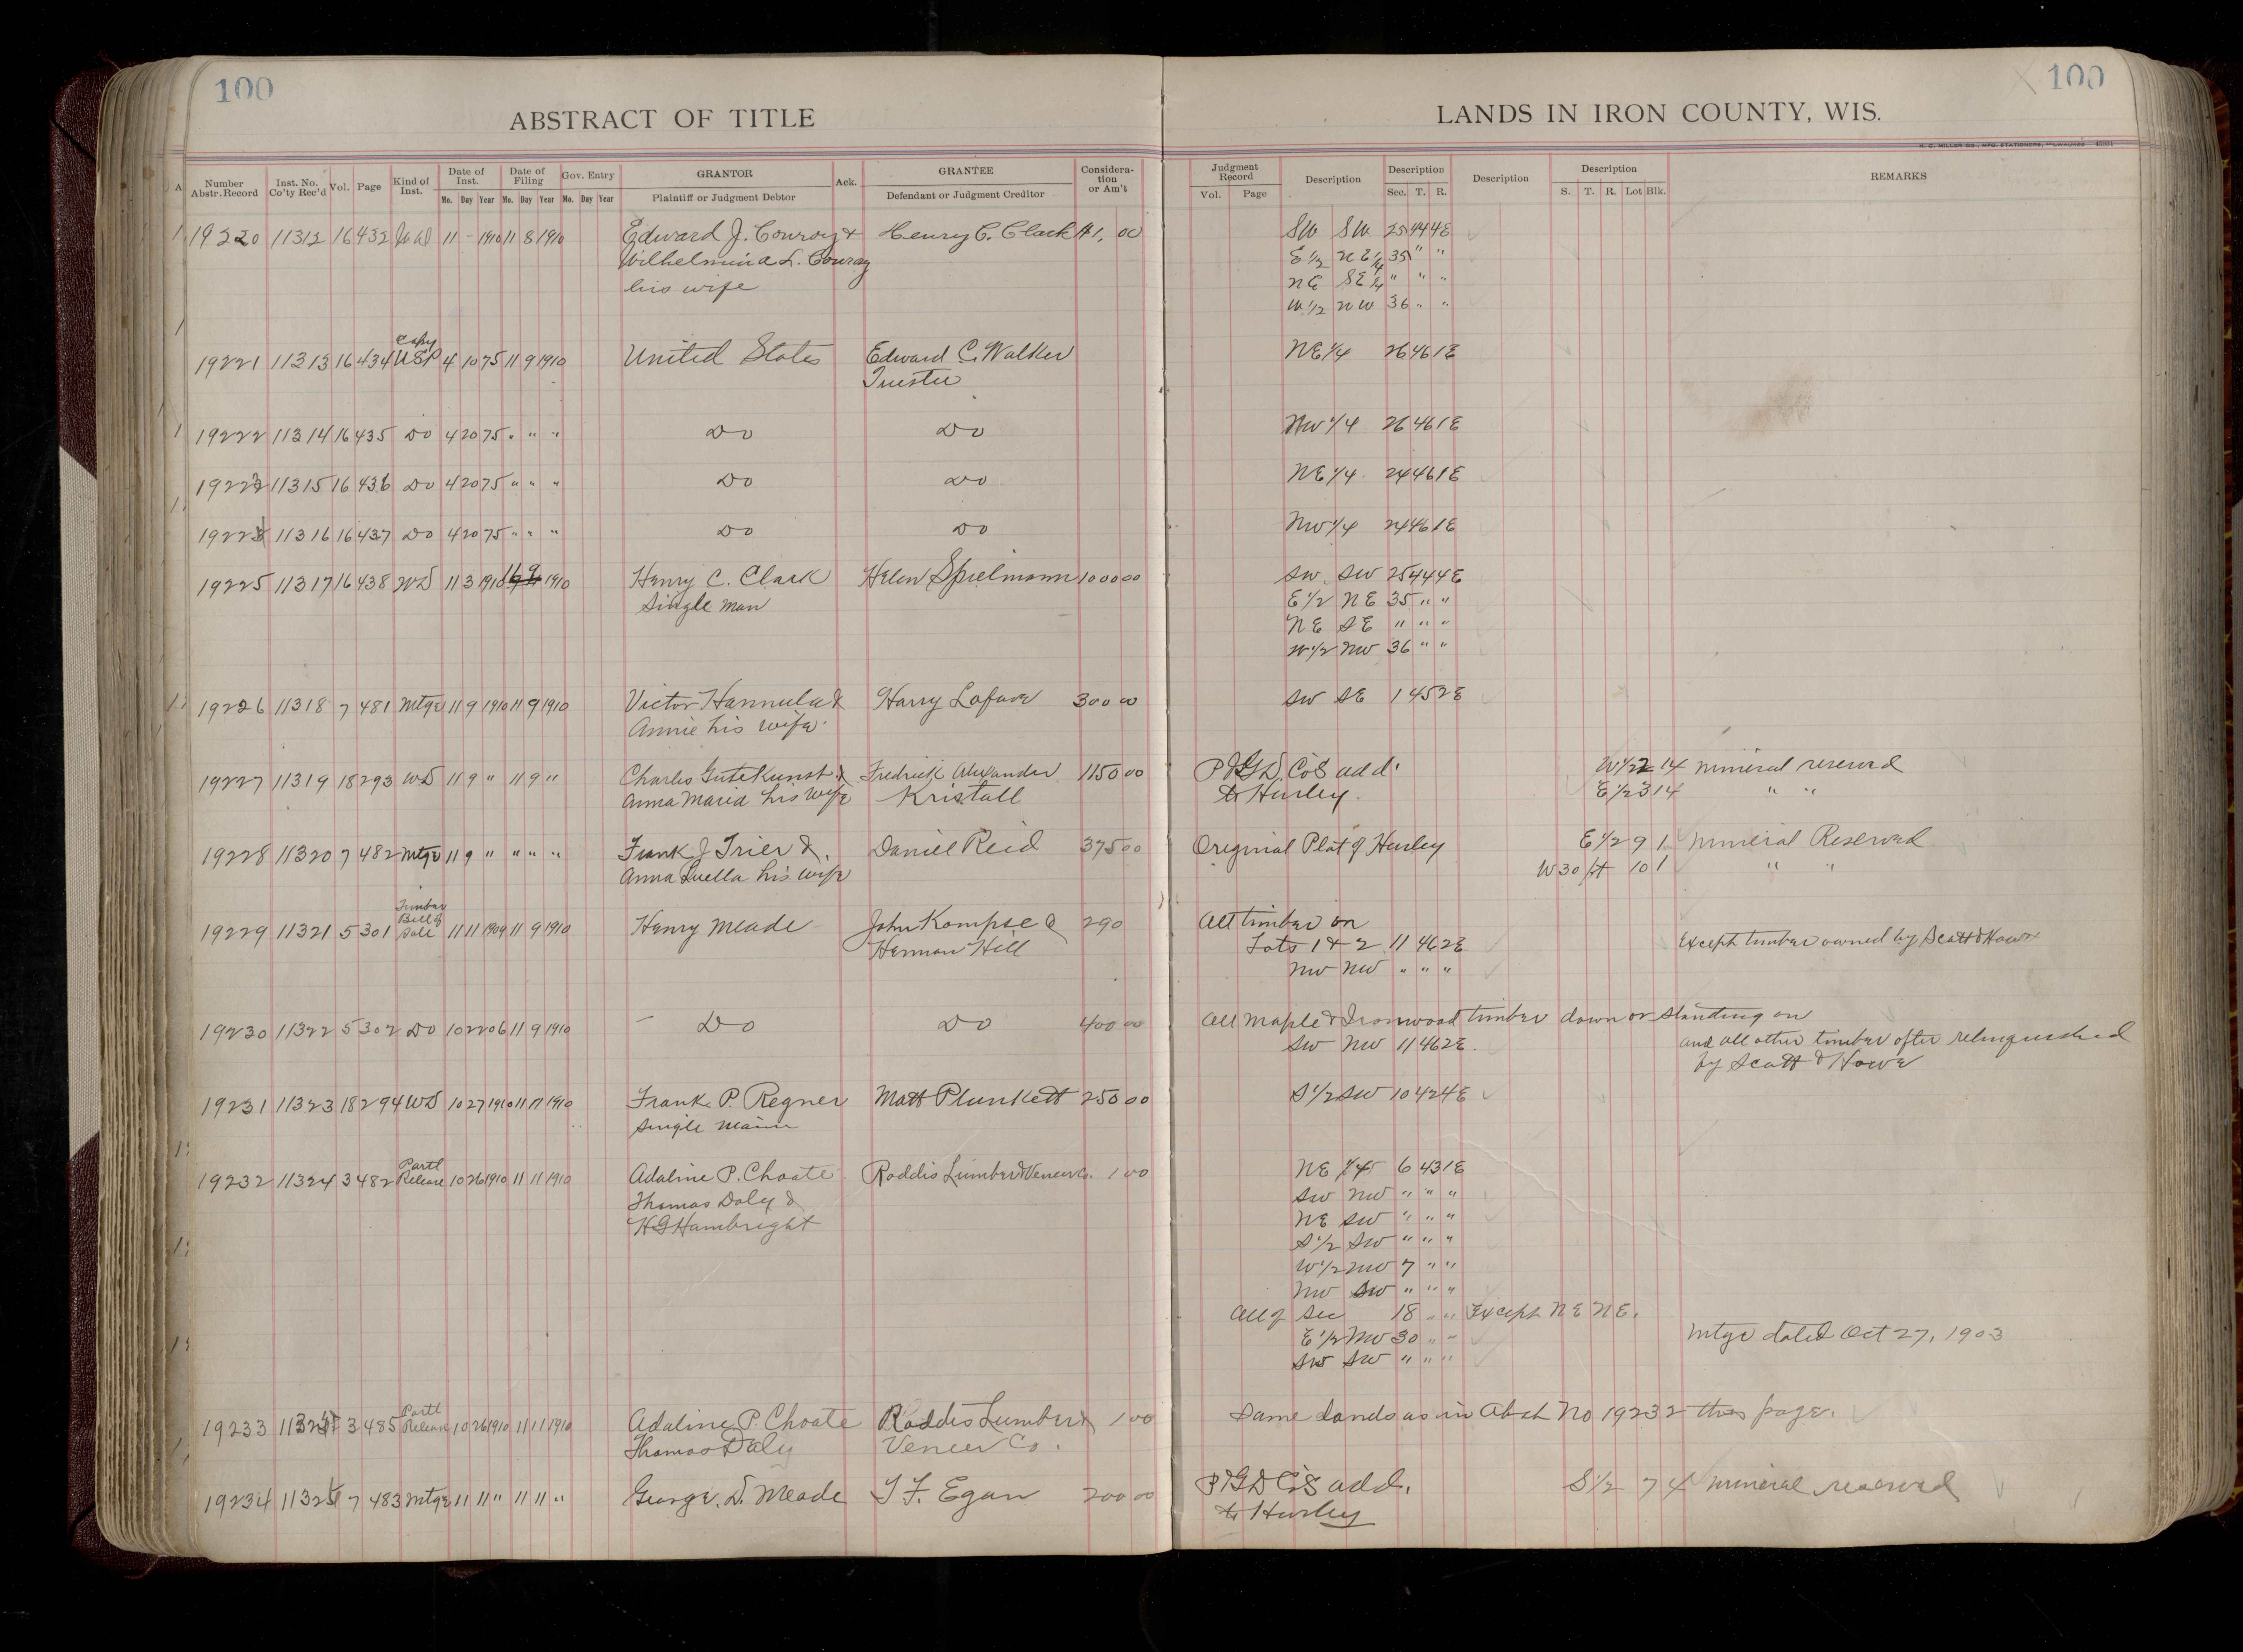 100
ABSTRACT OF TITLE
Number Abstr. Record
Inst. No. Co'ty Rec'd
Vol.
Page
Kind of Inst.
Date of Inst.
Mo. Day Year
Date of Filing
Mo. Day Year
Gov. Entry
Mo. Day Year
GRANTOR
Plaintiff or Judgment Debtor
Ack.
GRANTEE
Defendant or Judgment Creditor
Considera-tion or Am't
100
LANDS IN IRON COUNTY, WIS.
H. C. MILLER CO., MFG. STATIONERS, MILWAUKEE
Judgment Record
Vol. Page
Description
Description
Sec. T. R.
Description
Description
S. T. R. Lot Blk.
REMARKS
19220 11312 16 432 11 - 1910 11 8 1910 Edward J. Conroy & Henry C. Clark $1,00 SW SW 25 44 4E
Wilhelmina L. Conroy E 1/2 NE 1/4 35 " "
his wife NE SE 1/4 " " "
W 1/2 NW 36 " "
Copy
19221 11313 16 434 USP 4 10 75 11 9 1910 United States Edward C. Walker NE 1/4 26 46 1E
Trustee
19222 11314 16 435 Do 4 20 75 " " " Do Do NW 1/4 26 46 1E
11315 16 436 Do 4 20 75 " " " Do Do NE 1/4 24 46 1E
11316 16 437 Do 4 20 75 " " " Do Do NW 1/4 24 46 1E
19225 11317 16 438 WD 11 3 1910 1910 Henry C. Clark Helen Spielmann 1000 00 SW SW 25 44 4E
Single man E 1/2 NE 35 " "
NE SE " " "
W 1/2 NW 36 " "
19226 11318 7 481 Mtge 11 9 1910 11 9 1910 Victor Hannula & Harry Lafave 300 00 SW SE 1 45 2E
Annie his wife
19227 11319 18 293 WD 11 9 " 11 9 " Charles Gutekunst & Fredrick Alexander 1150 00 Co's add. W 1/2 2 14 mineral reserved
Anna Maria his wife Kristall to Hurley. E 1/2 3 14 " "
19228 11320 7 482 Mtge 11 9 " " " " Frank J Trier & Daniel Reid 375 00 Original Plat of Hurley E 1/2 9 1 Mineral Reserved
Anna Luella his wife W 30 ft 10 1 " "
Timber
Bill of
19229 11321 5 301 Sale 11 11 1909 11 9 1910 Henry Meade John Kompse & 290 All timber on
Herman Hill Lots 1 & 2 11 46 2E Except timber owned by Scott & Howe
NW NW " " "
19230 11322 5 302 Do 10 22 06 11 9 1910 Do Do 400 00 All Maple & Ironwood timber down or standing on
SW NW 11 46 2E and all other timber after relinquished
by Scott & Howe
19231 11323 18 294 WD 10 27 1910 11 11 1910 Frank P. Regner Matt Plunkett 250 00 S 1/2 SW 10 42 4E
Single
Partl
19232 11324 3 482 Release 10 26 1910 11 11 1910 Adaline P. Choate Roddis Lumber & Veneer Co. 1 00 NE 6 43 1E
Thomas Daly & SW NW " " "
H G Hambright NE SW " " "
S 1/2 SW " " "
W 1/2 NW 7 " "
NW SW " " "
All of Sec 18 " " Except NE NE.
E 1/2 NW 30 " " Mtge dated Oct 27, 1903
SW SW " " "
Partl
19233 3 485 Release 10 26 1910 11 11 1910 Adaline P. Choate Roddis Lumber & 1 00 Same lands as in Abst No 19232 this page.
Thomas Daly Veneer Co.
19234 7 483 Mtge 11 11 " 11 11 " George. D. Meade T F. Egan 200 00 Co's add. S 1/2 7 4 Mineral reserved
to Hurley